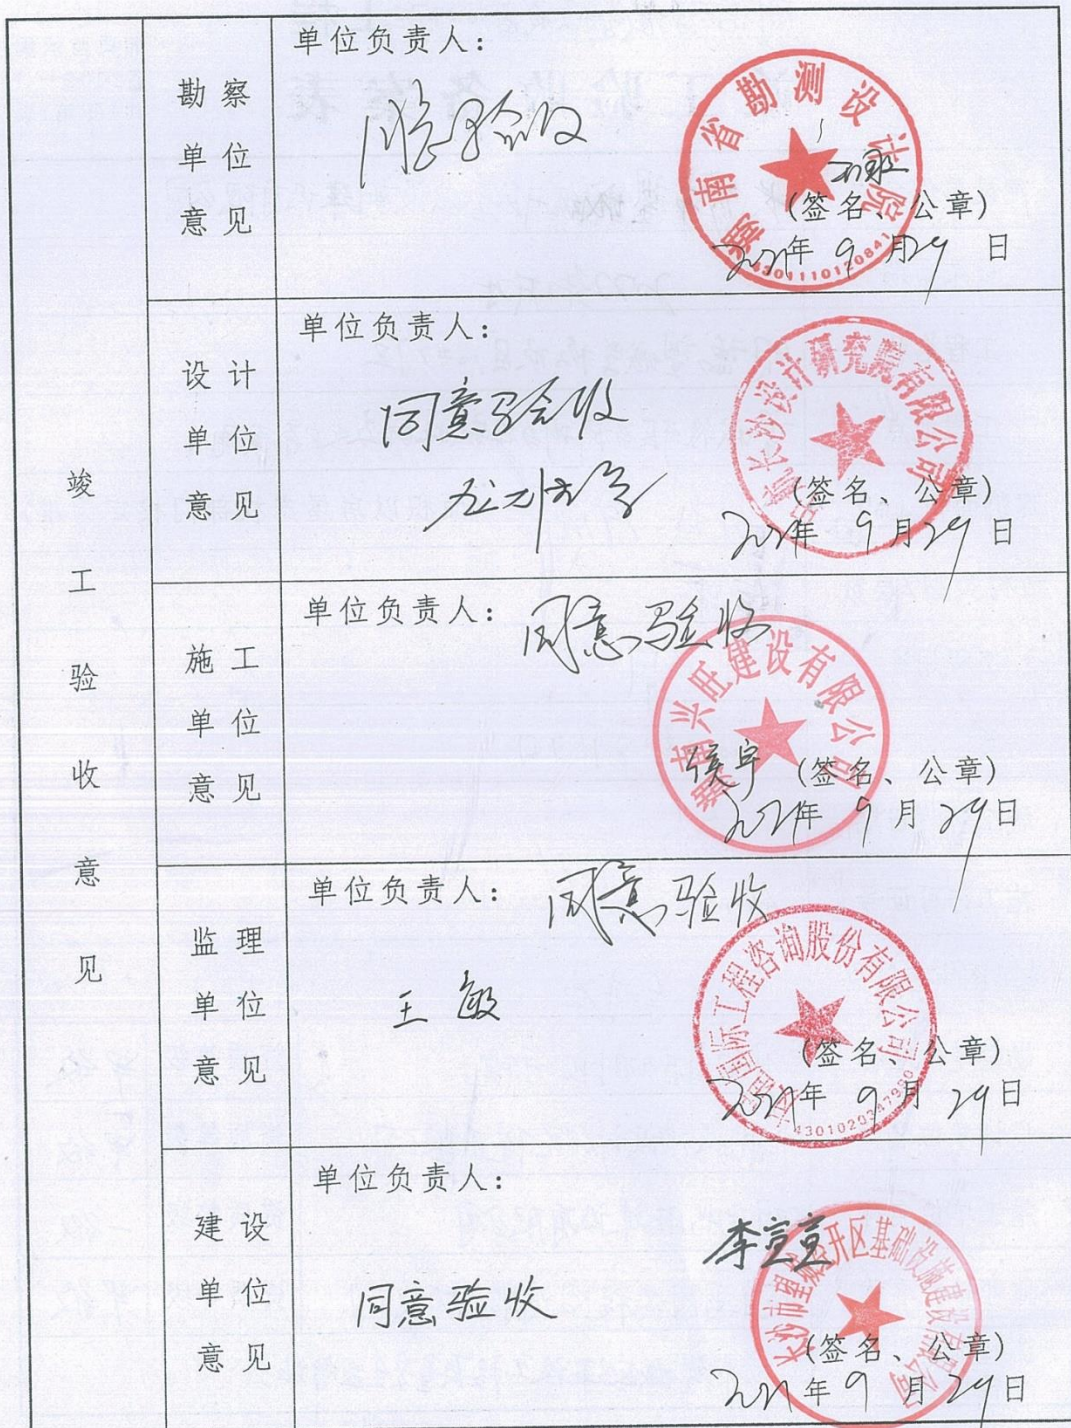 竣工验收意见
勘察单位意见
单位负责人：
同意验收
湖南省勘测设计院
4301110120841
(签名、公章)
2021年9月29日
设计单位意见
单位负责人：
同意验收
长沙设计研究院有限公司
(签名、公章)
2021年9月29日
施工单位意见
单位负责人：
同意验收
湖南兴旺建设有限公司
侯宇
(签名、公章)
2021年9月29日
监理单位意见
单位负责人：
同意验收
王敏
国际工程咨询股份有限公司
(签名、公章)
2021年9月29日
建设单位意见
单位负责人：
李宣宣
同意验收
开区基础设施建设有限公司
(签名、公章)
2021年9月29日